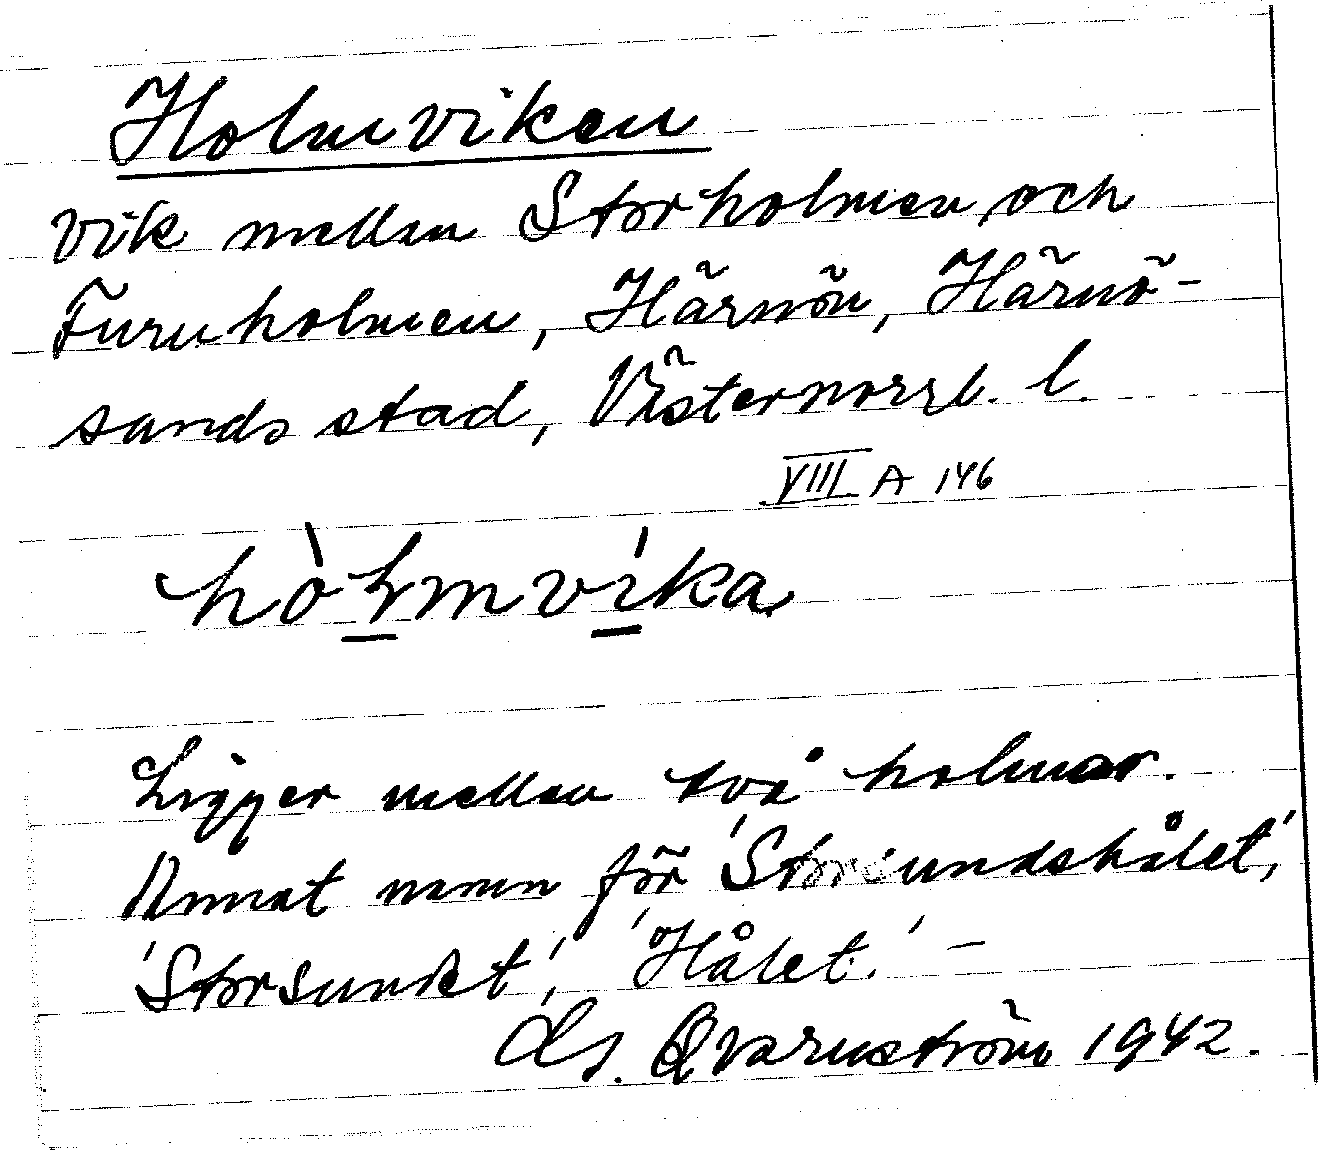 Holmviken
Vik mellan Storholmen och
Furuholmen, Härnön, Härnö-
sands stad, Västernorrl. l.
VIII A 146
hòlmvíka
Ligger mellan två holmar.
Annat namn för 'Storsundshålet,'
'Storsundet', 'Hålet.' –
Qvarnström 1942.